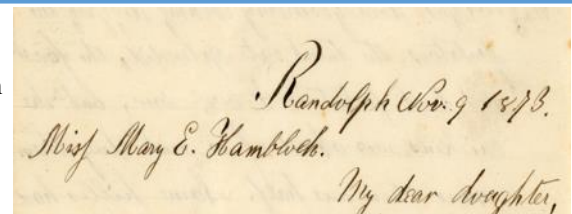 Randolph Nov. 9 1873.
Miss Mary E. Hambloch.
My dear daughter,